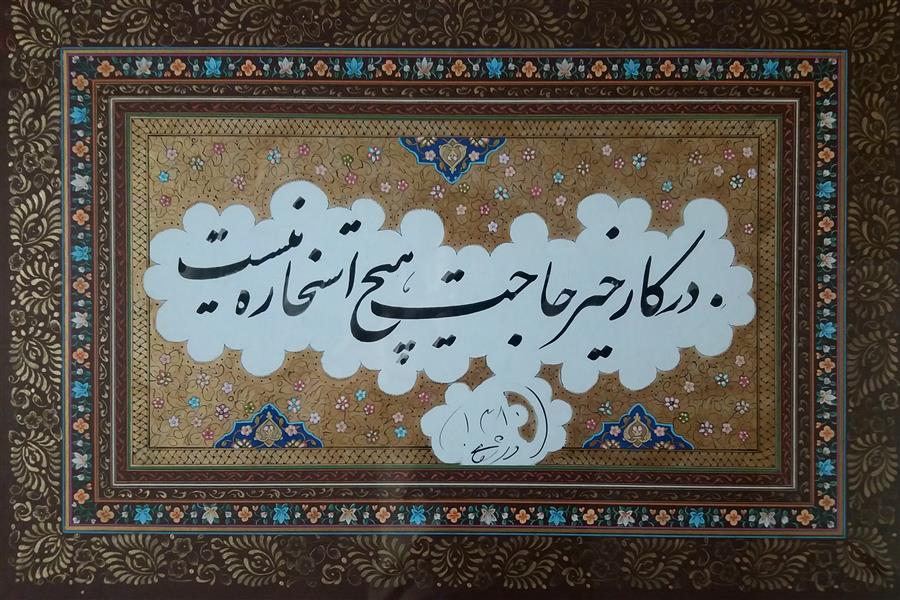 در کار خیر حاجت هیچ استخاره نیست
۱۳۸۰